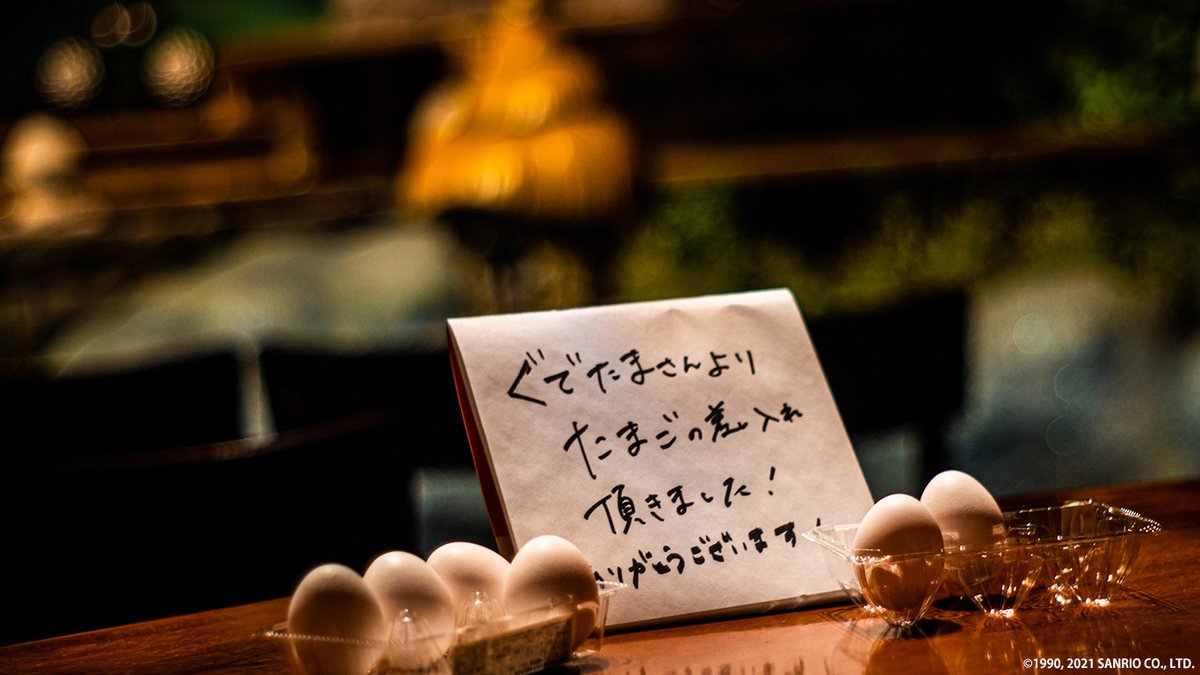 ぐでたまさんより
たまごの差し入れ
頂きました！
ありがとうございます！
©1990, 2021 SANRIO CO., LTD.